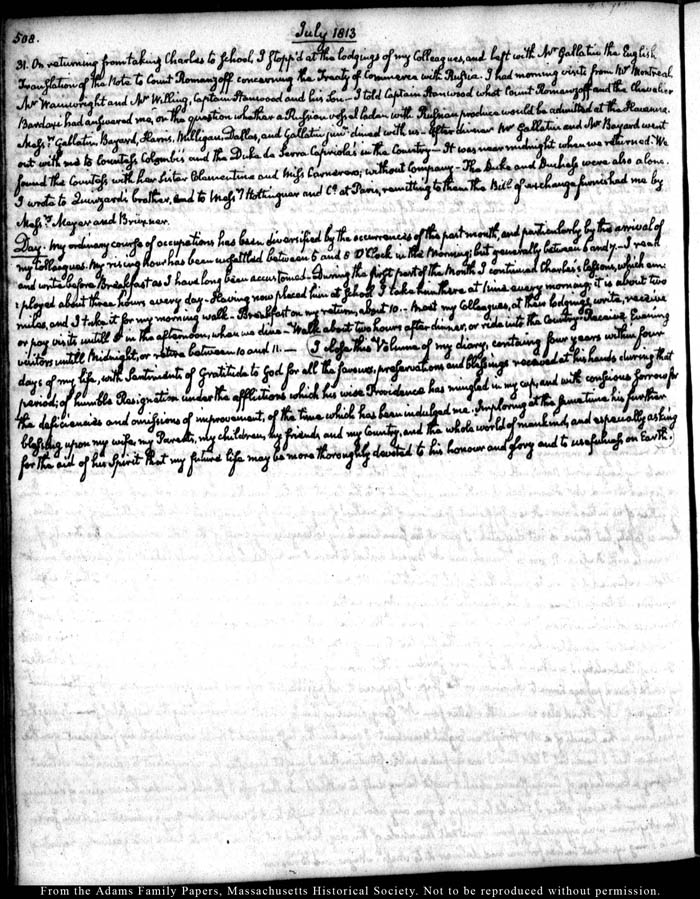 508.
July 1813
31. On returning from taking Charles to School, I stopp'd at the lodgings of my Colleagues, and left with Mr Gallatin the English
Translation of the Note to Count Romanzoff concerning the Treaty of Commerce with Russia. I had morning visits from Mr Montreal
Mr Wainwright and Mr Willing, Captain Stanwood and his Son — I told Captain Stanwood what Count Romanzoff and the Chevalier
Bardaxi had answered me, on the question whether a Russian vessel laden with Russian produce would be admitted at the Havanna.
Messrs Gallatin, Bayard, Harris, Milligan, Dallas, and Gallatin junr dined with us. After dinner Mr Gallatin and Mr Bayard went
out with me to Countess Colombi's and the Duke de Serra Capriola's in the Country — It was near midnight when we returned. We
found the Countess with her Sister Blumentina and Miss Carneiro; without Company. The Duke and Duchess were also alone.
I wrote to brother, and to Messrs Hottinguer and Co at Paris, remitting to them the Bill of exchange furnished me by
Messrs Meyer and Brüxner.
Day. My ordinary course of occupations has been diversified by the occurrences of this past month, and particularly by the arrival of
my Colleagues. My rising hour has been unsettled between 5 and 8 O'Clock in the Morning; but generally between 6 and 7. I read
and write before Breakfast as I have long been accustomed. During the first part of the Month I continued Charles's lessons, which em-
:ployed about three hours every day — Having now placed him at School I take him there at nine every morning; it is about two
miles, and I take it for my morning walk — Breakfast on my return, about 10. — Meet my Colleagues, at their lodgings, write, receive
or pay visits untill 5 in the afternoon, when we dine — Walk about two hours after dinner, or ride into the Country. Receive Evening
visitors untill Midnight, or retire between 10 and 11. — I close this Volume of my diary, containg four years within four
days of my life, with Sentiments of Gratitude to God for all the favours, preservations and blessings received at his hands during that
period; of humble Resignation under the afflictions which his wise Providence has mingled in my cup, and with conscious sorrow for
the deficiencies and omissions of improvement, of the time which has been indulged me. Imploring at the same time his further
blessing upon my wife, my Parents, my children, my friends and my Country, and the whole world of mankind, and especially asking
for the aid of his Spirit that my future life may be more thoroughly devoted to his honour and glory and to usefulness on Earth.
From the Adams Family Papers, Massachusetts Historical Society. Not to be reproduced without permission.